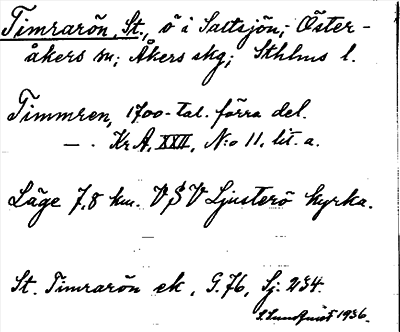 Timrarön, St., ö i Saltsjön; Öster-
åkers sn; Åkers skg; Sthlms l.
Timmren, 1700-tal. förra del.
— . Kr A, XXII, N:o 11, lit. a.
Läge 7,8 km. VSV Ljusterö kyrka.
St. Timrarön ek, G. 76, Sj. 234.
S. Lundquist 1936.